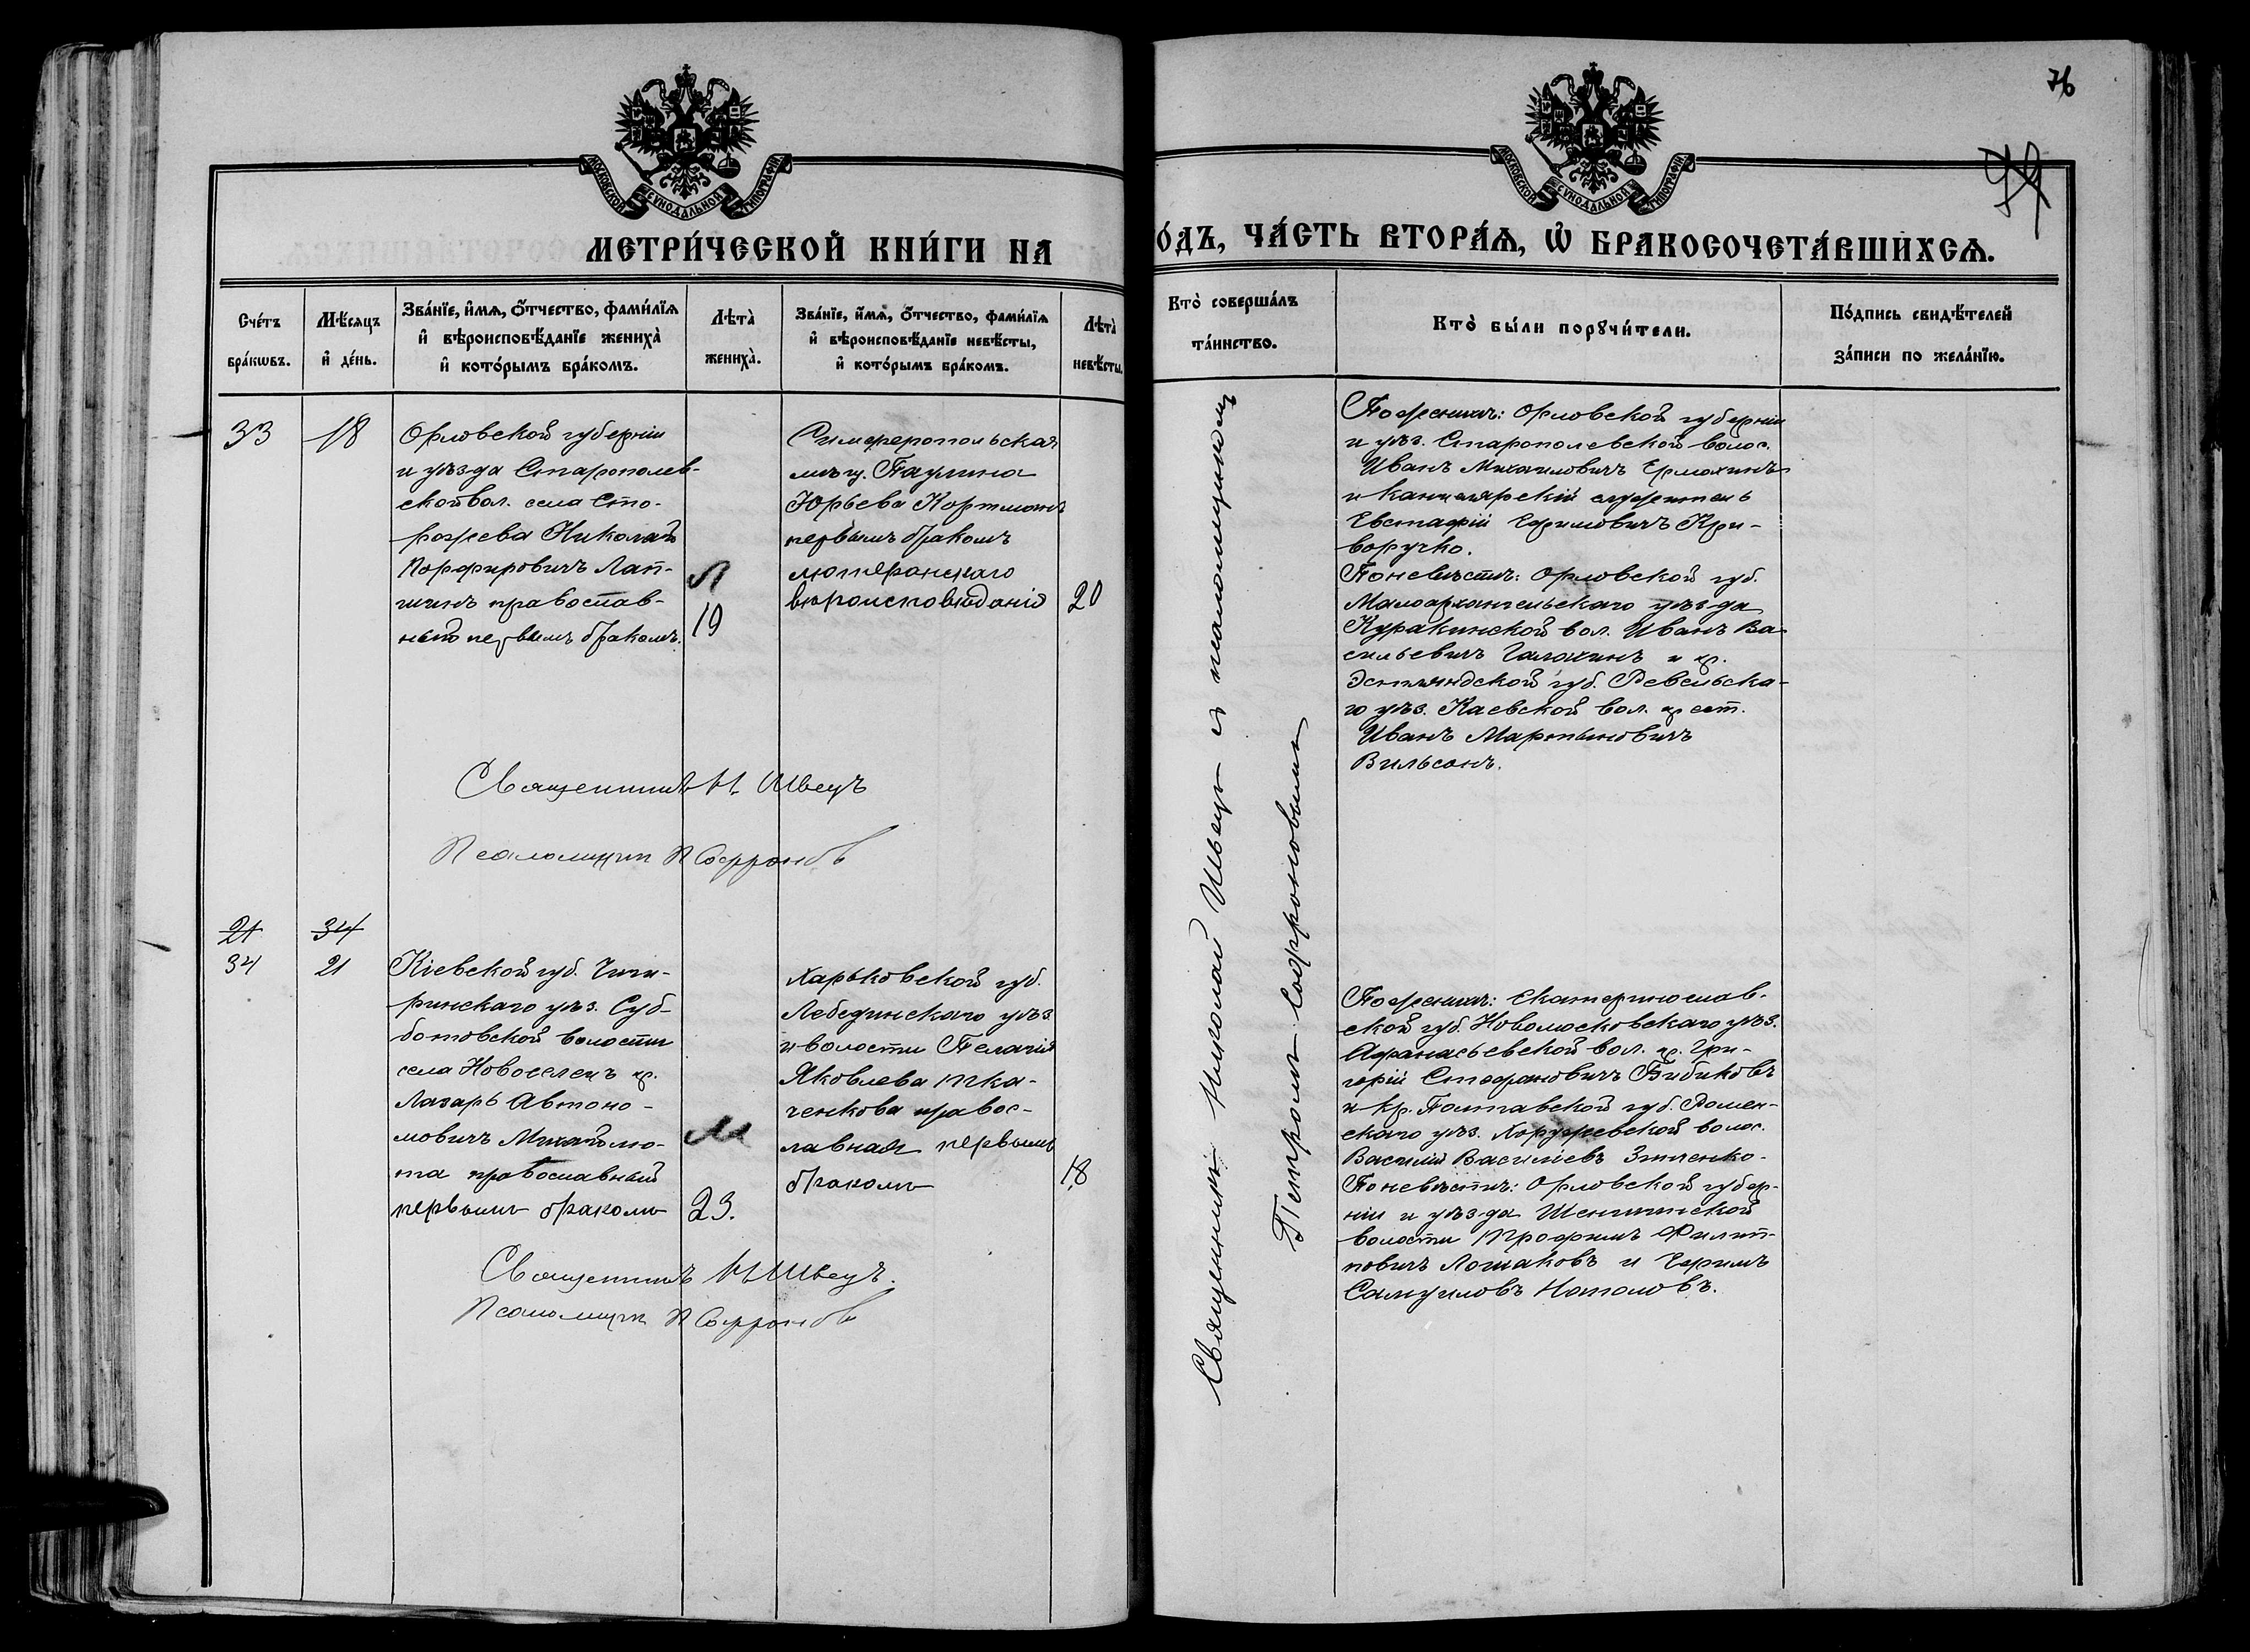 76
МОСКОВСКОЙ СѴНОДАЛЬНОЙ ТИПОГРАФІИ
МОСКОВСКОЙ СѴНОДАЛЬНОЙ ТИПОГРАФІИ
МЕТРИ́ЧЕСКОЙ КНИ́ГИ НА
О́ДЪ, ЧА́СТЬ ВТОРА́Ѧ, Ѡ БРАКОСОЧЕТА́ВШИХСѦ.
Сче́тъ бра́кѡвъ.
Мѣ́сѧцъ и҆ де́нь.
Зва́нїе, и҆́мѧ, ѻ҆́тчество, фами́лїѧ
и҆ вѣроисповѣ́данїе жениха̀
и҆ кото́рымъ бра́комъ.
Лѣта̀ жениха̀.
Зва́нїе, и҆́мѧ, ѻ҆́тчество, фами́лїѧ
и҆ вѣроисповѣ́данїе невѣ́сты,
и҆ кото́рымъ бра́комъ.
Лѣта̀ невѣ́сты.
Кто̀ соверша́лъ та́инство.
Кто̀ бы́ли порꙋчи́тели.
По́дпись свидѣ́телей
за́писи по жела́нїю.
33
18
Орловской губерніи
и уѣзда Старополев-
ской вол. села Сто-
рожева Николай
Порфировичъ Лап-
шинъ православ-
ный первымъ бракомъ.
Л
19
Симферопольская
мѣщ. Паулина
Юрьева Кортманъ
первымъ бракомъ
лютеранскаго
вѣроисповѣданія
20
Священникъ Н. Швецъ
Псаломщик П Софроновъ
Священникъ Николай Швецъ съ псаломщикомъ
Петромъ Софроновымъ
По женихѣ: Орловской губерніи
и уѣз. Старополевской волос.
Иванъ Михаиловичъ Ермохинъ
и Канцелярскій служитель
Евстафій Ефимовичъ Кри-
воручко.
По невѣстѣ: Орловской губ.
Малоархангельскаго уѣзда
Куракинской вол. Иванъ Ва-
сильевичъ Галахинъ и кр.
Эстляндской губ. Ревельска-
го уѣз. Каевской вол. крест.
Иванъ Мартыновичъ
Вильсонъ.
21
34
34
21
Кіевской губ. Чиги-
ринскаго уѣз. Суб-
ботовской волости
села Новоселец кр.
Лазарь Автоно-
мовичъ Михайлю-
та православный
первымъ бракомъ
М
23.
Харьковской губ.
Лебединскаго уѣз.
и волости Пелагія
Яковлева Тка-
ченкова правос-
лавная первымъ
бракомъ
18
Священникъ Н Швецъ.
Псаломщик П Софроновъ
По женихѣ: Екатеринослав-
ской губ. Новомосковскаго уѣз.
Афанасьевской вол. кр. Гри-
горій Стефановичъ Бибиковъ
и кр. Полтавской губ. Ромен-
скаго уѣз. Хоружевской волос.
Василій Васильевъ
По невѣстѣ: Орловской губер-
ніи и уѣзда
волости Трофимъ Филип-
повичъ Лошаковъ и Ефимъ
Самуиловъ